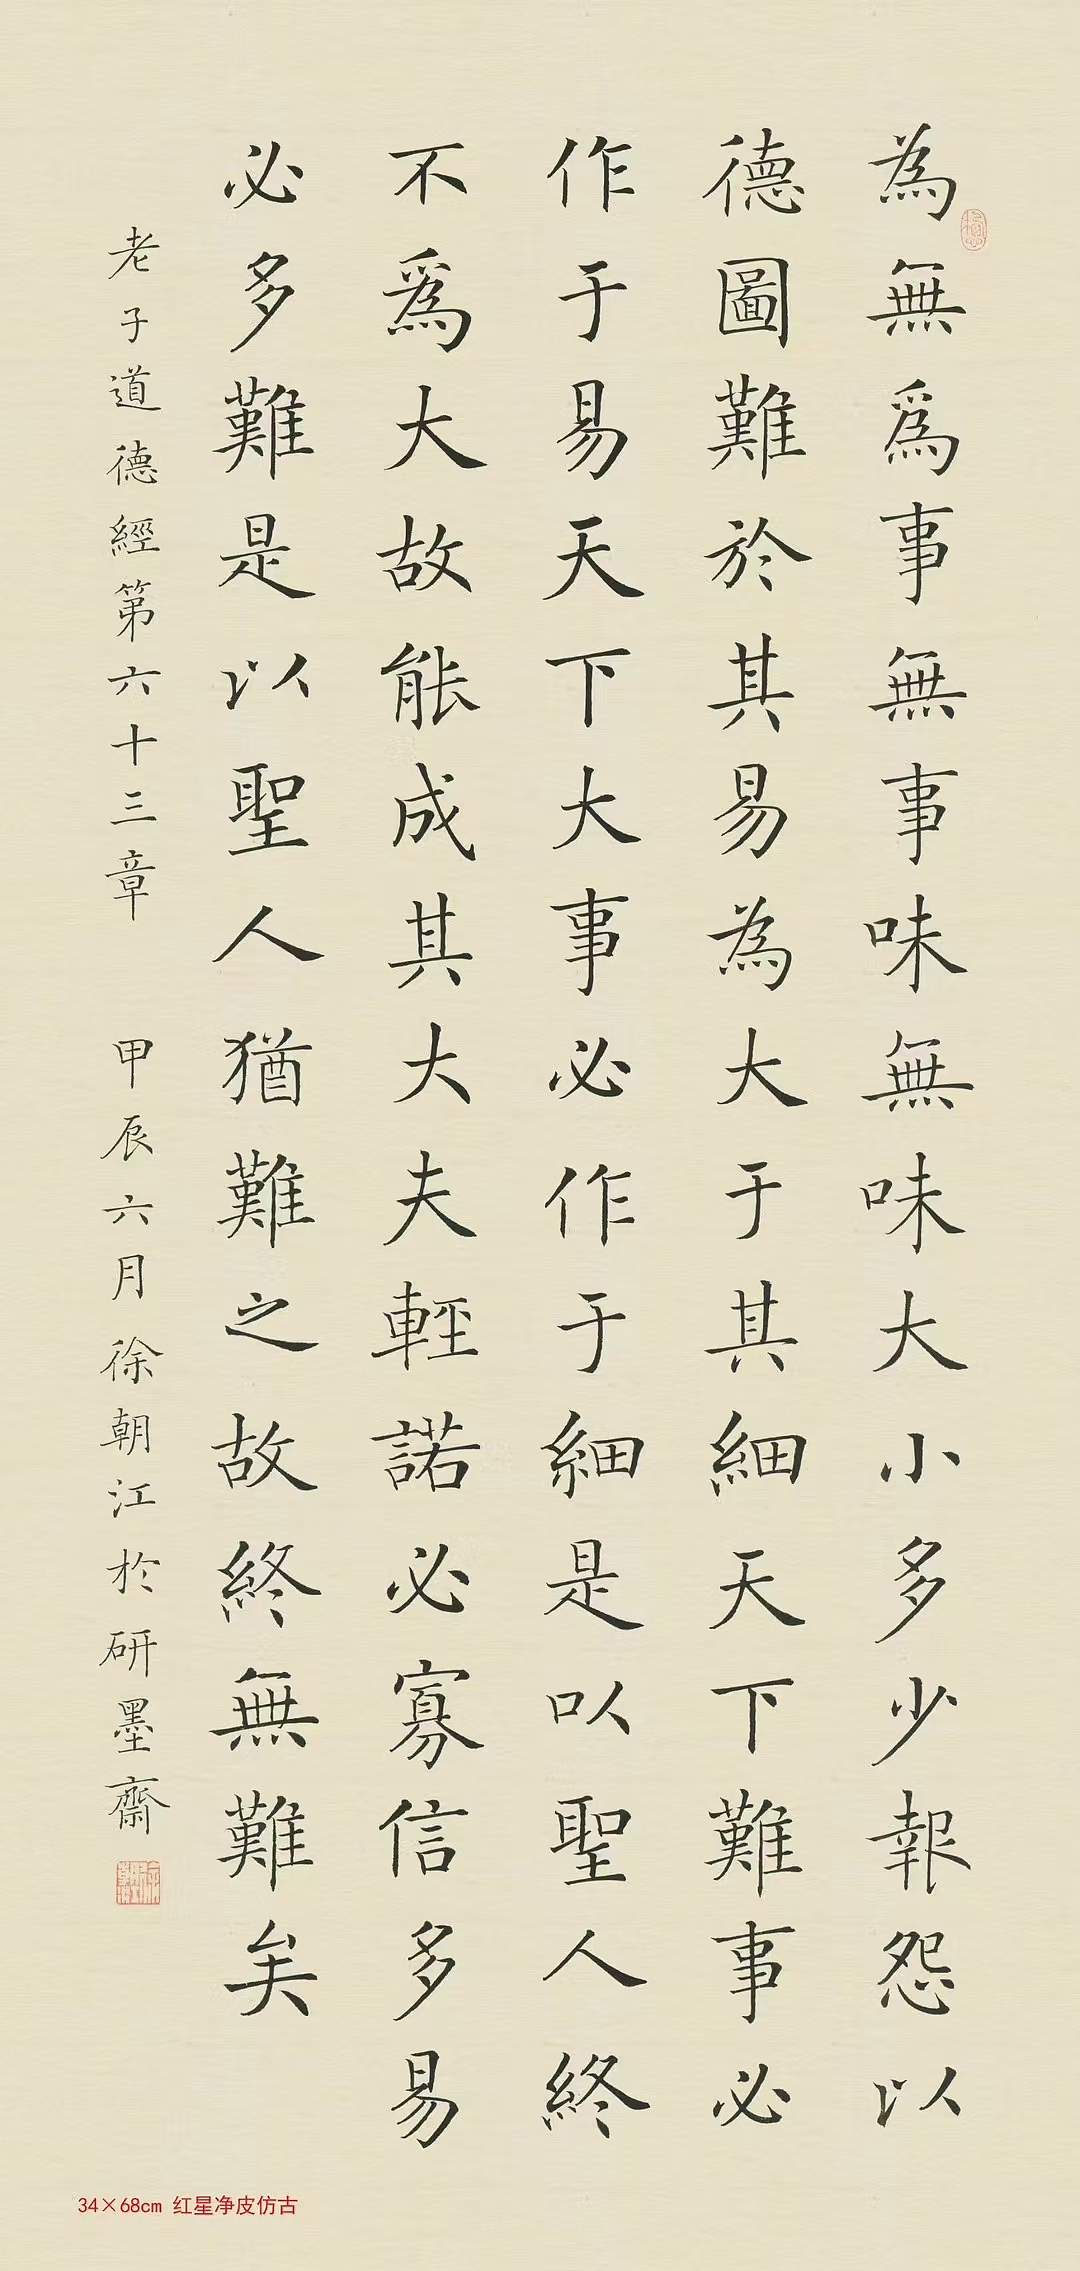 為無爲事無事味無味大小多少報怨以
德圖難於其易為大于其細天下難事必
作于易天下大事必作于細是以聖人終
不爲大故能成其大夫輕諾必寡信多易
必多難是以聖人猶難之故終無難矣
老子道德經第六十三章 甲辰六月徐朝江於研墨齋
34×68cm 红星净皮仿古